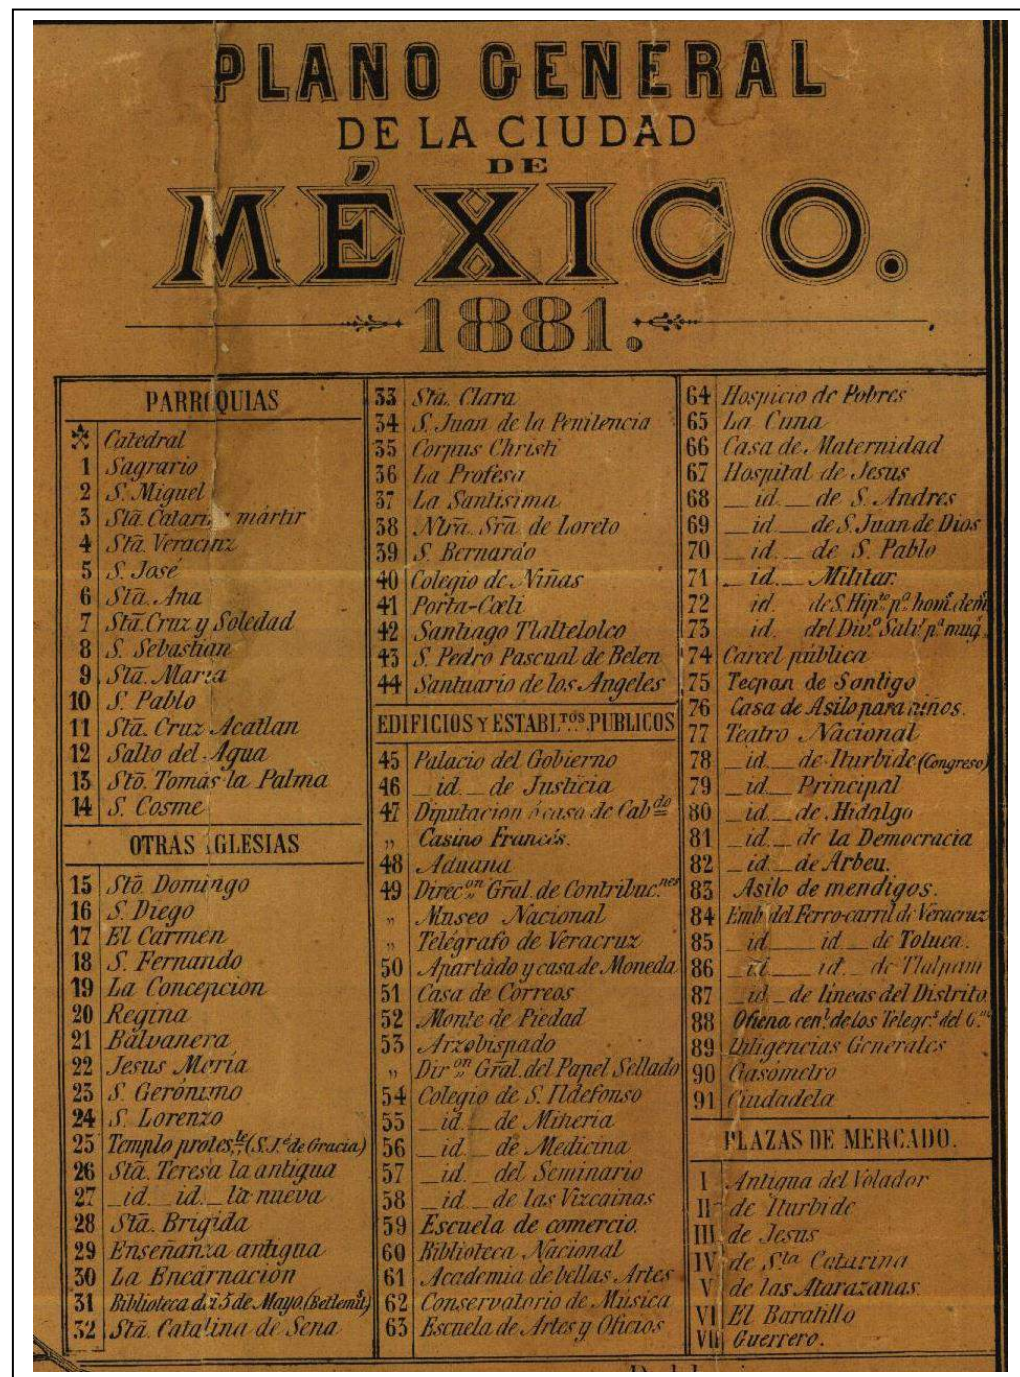 PLANO GENERAL
DE LA CIUDAD
DE
MÉXICO.
1881.
PARROQUIAS
Catedral
1 Sagrario
2 S. Miguel
3 Stā. Catarina mártir
4 Stā. Veracruz
5 S. José
6 Stā. Ana
7 Stā. Cruz y Soledad
8 S. Sebastian
9 Stā. Maria
10 S. Pablo
11 Stā. Cruz Acatlan
12 Salto del Agua
13 Stō. Tomás la Palma
14 S. Cosme
OTRAS IGLESIAS
15 Stō. Domingo
16 S. Diego
17 El Carmen
18 S. Fernando
19 La Concepcion
20 Regina
21 Balvanera
22 Jesus María
23 S. Gerónimo
24 S. Lorenzo
25 Templo protes.te (S. J.é de Gracia)
26 Stā. Teresa la antigua
27 _id._ id._ la nueva
28 Stā. Brigida
29 Enseñanza antigua
30 La Encarnación
31 Biblioteca del 5 de Mayo. (Betlemit.s)
32 Stā. Catalina de Sena
33 Stā. Clara
34 S. Juan de la Penitencia
35 Corpus Christi
36 La Profesa
37 La Santisima
38 Ntrā. Srā. de Loreto
39 S. Bernardo
40 Colegio de Niñas
41 Porta-Cœli
42 Santiago Tlaltelolco
43 S. Pedro Pascual de Belen
44 Santuario de los Angeles
EDIFICIOS Y ESTABL.TOS PUBLICOS
45 Palacio del Gobierno
46 _id._ de Justicia
47 Diputacion ó casa de Cab.do
„ Casino Francés.
48 Aduana
49 Direc.on Gral. de Contribuc.nes
„ Museo Nacional
„ Telégrafo de Veracruz
50 Apartado y casa de Moneda
51 Casa de Correos
52 Monte de Piedad
53 Arzobispado
„ Dir.on Gral. del Papel Sellado
54 Colegio de S. Ildefonso
55 _id._ de Mineria
56 _id._ de Medicina
57 _id._ del Seminario
58 _id_ de las Vizcainas
59 Escuela de comercio.
60 Biblioteca Nacional
61 Academia de bellas Artes
62 Conservatorio de Música
63 Escuela de Artes y Oficios
64 Hospicio de Pobres
65 La Cuna
66 Casa de Maternidad
67 Hospital de Jesus
68 _id._ de S. Andres
69 _id_ de S. Juan de Dios
70 _id._ de S. Pablo
71 _id._ Militar.
72 id. de S. Hip.to p.a hom.s dem.s
73 id. del Div.o Salv.r p.a mug.s
74 Carcel pública
75 Tecpan de Santigo
76 Casa de Asilo para niños.
77 Teatro Nacional
78 _id._ de Iturbide (Congreso)
79 _id._ Principal
80 _id._ de Hidalgo
81 _id._ de la Democracia
82 _id._ de Arbeu.
83 Asilo de mendigos.
84 Emb. del Ferro-carril de Veracruz
85 _id___id._ de Toluca.
86 _id___id._ de Tlalpam
87 _id_ de lineas del Distrito
88 Oficina cen.l de los Telegr.s del G.no
89 Diligencias Generales
90 Gasómetro
91 Ciudadela
PLAZAS DE MERCADO.
I Antigua del Volador
II de Iturbide
III de Jesus
IV de S.ta Catarina
V de las Atarazanas.
VI El Baratillo
VII Guerrero.